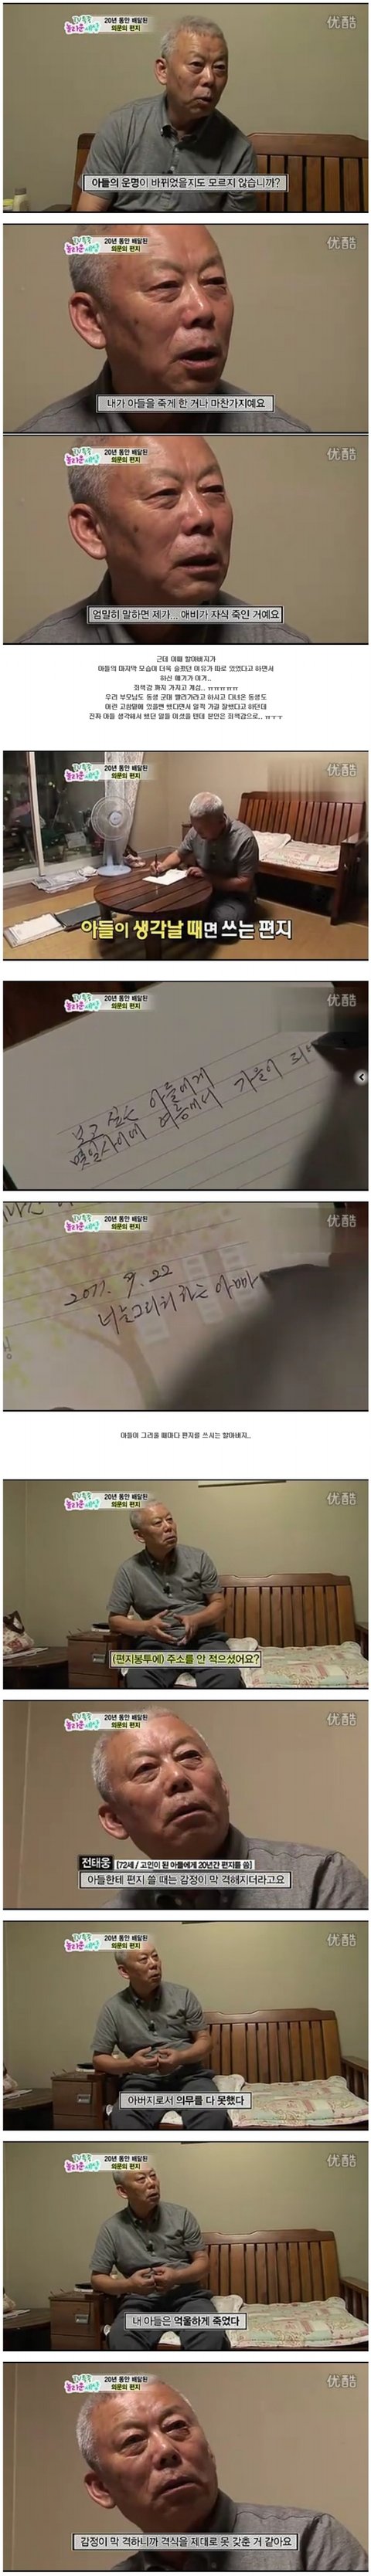 TV特종
놀라운 세상
20년 동안 배달된
의문의 편지
优酷
아들의 운명이 바뀌었을지도 모르지 않습니까?
20년 동안 배달된
의문의 편지
优酷
내가 아들을 죽게 한 거나 마찬가지예요
20년 동안 배달된
의문의 편지
优酷
엄밀히 말하면 제가... 애비가 자식 죽인 거예요
근데 이때 할아버지가
아들의 마지막 모습이 더욱 슬펐던 이유가 따로 있었다고 하면서
하신 얘기가 이거..
죄책감 까지 가지고 계심.. ㅠㅠㅠㅠㅠㅠ
우리 부모님도 동생 군대 빨리가라고 하시고 다녀온 동생도
어린 고참밑에 있을뻔 했다면서 일찍 가길 잘했다고 하던데
전부 아들 생각해서 했던 말들 이셨을 텐데 본인은 죄책감으로.. ㅠㅜㅜ
20년 동안 배달된
의문의 편지
优酷
아들이 생각날 때면 쓰는 편지
20년 동안 배달된
의문의 편지
优酷
보고 싶은 아들에게
몇일사이에 여름에서 가을이 되
20년 동안 배달된
의문의 편지
优酷
2011. 9. 22
너를 그리워 하는 아빠
아들이 그리울 때마다 편지를 쓰시는 할아버지..
20년 동안 배달된
의문의 편지
优酷
(편지봉투에) 주소를 안 적으셨어요?
20년 동안 배달된
의문의 편지
优酷
전태웅 [72세 / 고인이 된 아들에게 20년간 편지를 씀]
아들한테 편지 쓸 때는 감정이 막 격해지더라고요
20년 동안 배달된
의문의 편지
优酷
아버지로서 의무를 다 못했다
20년 동안 배달된
의문의 편지
优酷
내 아들은 억울하게 죽었다
20년 동안 배달된
의문의 편지
优酷
감정이 막 격하니까 격식을 제대로 못 갖춘 거 같아요